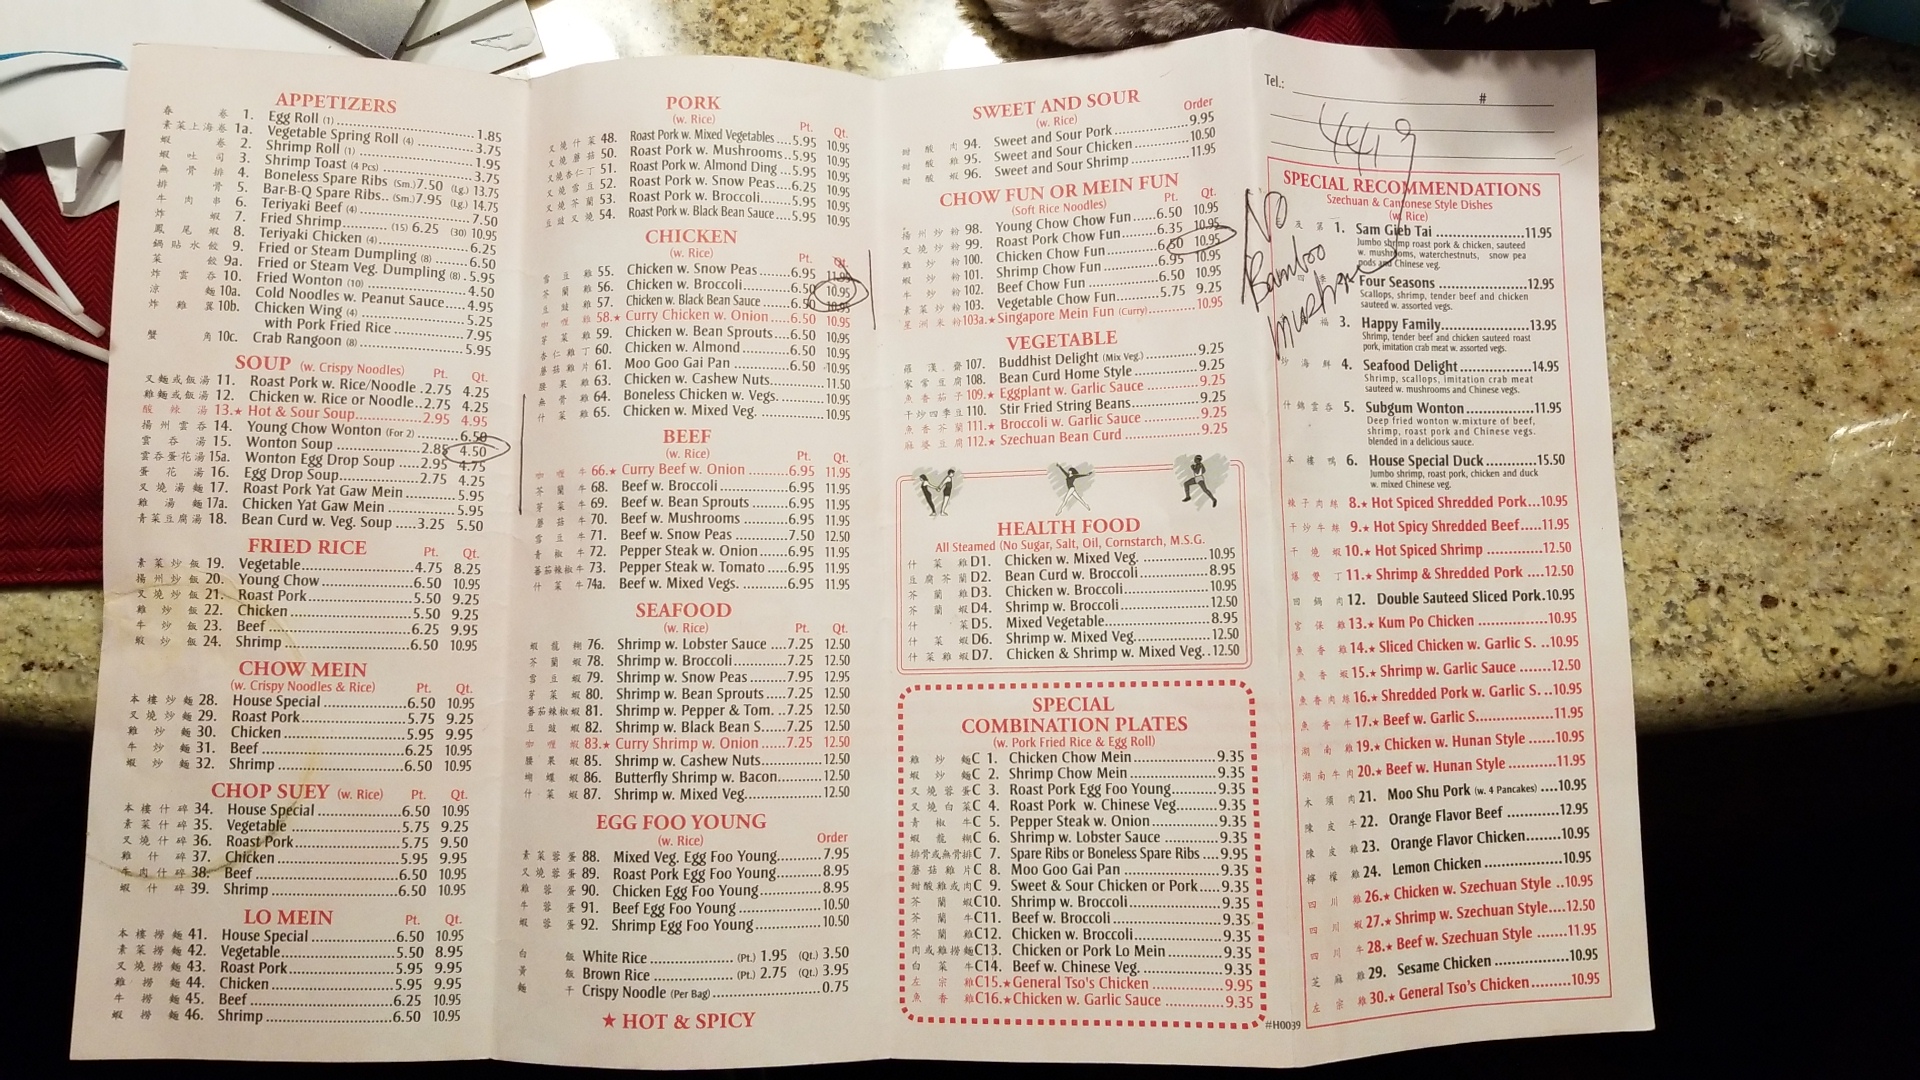 APPETIZERS
春 卷 1. Egg Roll (1) 1.85
素菜上海卷 1a. Vegetable Spring Roll (4) 3.75
蝦 卷 2. Shrimp Roll (1) 1.95
蝦 吐 司 3. Shrimp Toast (4 Pcs) 3.75
無 骨 排 4. Boneless Spare Ribs (Sm.) 7.50 (Lg.) 13.75
排 骨 5. Bar-B-Q Spare Ribs.. (Sm.) 7.95 (Lg.) 14.75
牛 肉 串 6. Teriyaki Beef (4) 7.50
炸 蝦 7. Fried Shrimp (15) 6.25 (30) 10.95
鳳 尾 蝦 8. Teriyaki Chicken (4) 6.25
鍋 貼 水 餃 9. Fried or Steam Dumpling (8) 6.50
菜 餃 9a. Fried or Steam Veg. Dumpling (8) 5.95
炸 雲 吞 10. Fried Wonton (10) 4.50
涼 麵 10a. Cold Noodles w. Peanut Sauce 4.95
炸 雞 翼 10b. Chicken Wing (4) 5.25
with Pork Fried Rice 7.95
蟹 角 10c. Crab Rangoon (8) 5.95
SOUP (w. Crispy Noodles) Pt. Qt.
叉麵或飯湯 11. Roast Pork w. Rice/Noodle 2.75 4.25
雞麵或飯湯 12. Chicken w. Rice or Noodle 2.75 4.25
酸 辣 湯 13.★ Hot & Sour Soup 2.95 4.95
揚州雲吞 14. Young Chow Wonton (For 2) 6.50
雲 吞 湯 15. Wonton Soup 2.85 4.50
雲吞蛋花湯 15a. Wonton Egg Drop Soup 2.95 4.75
蛋 花 湯 16. Egg Drop Soup 2.75 4.25
叉 燒 湯 麵 17. Roast Pork Yat Gaw Mein 5.95
雞 湯 麵 17a. Chicken Yat Gaw Mein 5.95
青菜豆腐湯 18. Bean Curd w. Veg. Soup 3.25 5.50
FRIED RICE Pt. Qt.
素 菜 炒 飯 19. Vegetable 4.75 8.25
揚 州 炒 飯 20. Young Chow 6.50 10.95
叉 燒 炒 飯 21. Roast Pork 5.50 9.25
雞 炒 飯 22. Chicken 5.50 9.25
牛 炒 飯 23. Beef 6.25 9.95
蝦 炒 飯 24. Shrimp 6.50 10.95
CHOW MEIN
(w. Crispy Noodles & Rice) Pt. Qt.
本 樓 炒 麵 28. House Special 6.50 10.95
叉 燒 炒 麵 29. Roast Pork 5.75 9.25
雞 炒 麵 30. Chicken 5.95 9.95
牛 炒 麵 31. Beef 6.25 10.95
蝦 炒 麵 32. Shrimp 6.50 10.95
CHOP SUEY (w. Rice) Pt. Qt.
本 樓 什 碎 34. House Special 6.50 10.95
素 菜 什 碎 35. Vegetable 5.75 9.25
叉 燒 什 碎 36. Roast Pork 5.75 9.50
雞 什 碎 37. Chicken 5.95 9.95
牛 肉 什 碎 38. Beef 6.50 10.95
蝦 什 碎 39. Shrimp 6.50 10.95
LO MEIN Pt. Qt.
本 樓 撈 麵 41. House Special 6.50 10.95
素 菜 撈 麵 42. Vegetable 5.50 8.95
叉 燒 撈 麵 43. Roast Pork 5.95 9.95
雞 撈 麵 44. Chicken 5.95 9.95
牛 撈 麵 45. Beef 6.25 10.95
蝦 撈 麵 46. Shrimp 6.50 10.95
PORK
(w. Rice) Pt. Qt.
叉 燒 什 菜 48. Roast Pork w. Mixed Vegetables 5.95 10.95
叉 燒 蘑 菇 50. Roast Pork w. Mushrooms 5.95 10.95
叉燒杏仁丁 51. Roast Pork w. Almond Ding 5.95 10.95
叉 燒 雪 豆 52. Roast Pork w. Snow Peas 6.25 10.95
叉 燒 芥 蘭 53. Roast Pork w. Broccoli 5.95 10.95
豆 豉 叉 燒 54. Roast Pork w. Black Bean Sauce 5.95 10.95
CHICKEN
(w. Rice) Pt. Qt.
雪 豆 雞 55. Chicken w. Snow Peas 6.95 11.95
芥 蘭 雞 56. Chicken w. Broccoli 6.50 10.95
豆 豉 雞 57. Chicken w. Black Bean Sauce 6.50 10.95
咖 喱 雞 58.★ Curry Chicken w. Onion 6.50 10.95
芽 菜 雞 59. Chicken w. Bean Sprouts 6.50 10.95
杏 仁 雞 丁 60. Chicken w. Almond 6.50 10.95
蘑 菇 雞 片 61. Moo Goo Gai Pan 6.50 10.95
腰 果 雞 63. Chicken w. Cashew Nuts 11.50
無 骨 雞 64. Boneless Chicken w. Vegs. 10.95
什 菜 雞 65. Chicken w. Mixed Veg. 10.95
BEEF
(w. Rice) Pt. Qt.
咖 喱 牛 66.★ Curry Beef w. Onion 6.95 11.95
芥 蘭 牛 68. Beef w. Broccoli 6.95 11.95
芽 菜 牛 69. Beef w. Bean Sprouts 6.95 11.95
蘑 菇 牛 70. Beef w. Mushrooms 6.95 11.95
雪 豆 牛 71. Beef w. Snow Peas 7.50 12.50
青 椒 牛 72. Pepper Steak w. Onion 6.95 11.95
蕃茄辣椒牛 73. Pepper Steak w. Tomato 6.95 11.95
什 菜 牛 74a. Beef w. Mixed Vegs. 6.95 11.95
SEAFOOD
(w. Rice) Pt. Qt.
蝦 龍 糊 76. Shrimp w. Lobster Sauce 7.25 12.50
芥 蘭 蝦 78. Shrimp w. Broccoli 7.25 12.50
雪 豆 蝦 79. Shrimp w. Snow Peas 7.95 12.95
芽 菜 蝦 80. Shrimp w. Bean Sprouts 7.25 12.50
蕃茄辣椒蝦 81. Shrimp w. Pepper & Tom. 7.25 12.50
豆 豉 蝦 82. Shrimp w. Black Bean S. 7.25 12.50
咖 喱 蝦 83.★ Curry Shrimp w. Onion 7.25 12.50
腰 果 蝦 85. Shrimp w. Cashew Nuts 12.50
蝴 蝶 蝦 86. Butterfly Shrimp w. Bacon 12.50
什 菜 蝦 87. Shrimp w. Mixed Veg. 12.50
EGG FOO YOUNG
(w. Rice) Order
素 菜 蓉 蛋 88. Mixed Veg. Egg Foo Young 7.95
叉 燒 蓉 蛋 89. Roast Pork Egg Foo Young 8.95
雞 蓉 蛋 90. Chicken Egg Foo Young 8.95
牛 蓉 蛋 91. Beef Egg Foo Young 10.50
蝦 蓉 蛋 92. Shrimp Egg Foo Young 10.50
白 飯 White Rice (Pt.) 1.95 (Qt.) 3.50
黃 飯 Brown Rice (Pt.) 2.75 (Qt.) 3.95
麵 干 Crispy Noodle (Per Bag) 0.75
★ HOT & SPICY
SWEET AND SOUR
(w. Rice) Order
甜 酸 肉 94. Sweet and Sour Pork 9.95
甜 酸 雞 95. Sweet and Sour Chicken 10.50
甜 酸 蝦 96. Sweet and Sour Shrimp 11.95
CHOW FUN OR MEIN FUN
(Soft Rice Noodles) Pt. Qt.
揚 州 炒 粉 98. Young Chow Chow Fun 6.50 10.95
叉 燒 炒 粉 99. Roast Pork Chow Fun 6.35 10.95
雞 炒 粉 100. Chicken Chow Fun 6.50 10.95
蝦 炒 粉 101. Shrimp Chow Fun 6.95 10.95
牛 炒 粉 102. Beef Chow Fun 6.50 10.95
素 菜 炒 粉 103. Vegetable Chow Fun 5.75 9.25
星 洲 米 粉 103a.★ Singapore Mein Fun (Curry) 10.95
VEGETABLE
羅 漢 齋 107. Buddhist Delight (Mix Veg.) 9.25
家 常 豆 腐 108. Bean Curd Home Style 9.25
魚 香 茄 子 109.★ Eggplant w. Garlic Sauce 9.25
干炒四季豆 110. Stir Fried String Beans 9.25
魚 香 芥 蘭 111.★ Broccoli w. Garlic Sauce 9.25
麻 婆 豆 腐 112.★ Szechuan Bean Curd 9.25
HEALTH FOOD
All Steamed (No Sugar, Salt, Oil, Cornstarch, M.S.G.
什 菜 雞 D1. Chicken w. Mixed Veg. 10.95
豆 腐 芥 蘭 D2. Bean Curd w. Broccoli 8.95
芥 蘭 雞 D3. Chicken w. Broccoli 10.95
芥 蘭 蝦 D4. Shrimp w. Broccoli 12.50
什 菜 D5. Mixed Vegetable 8.95
什 菜 蝦 D6. Shrimp w. Mixed Veg. 12.50
什 菜 雞 蝦 D7. Chicken & Shrimp w. Mixed Veg. 12.50
SPECIAL
COMBINATION PLATES
(w. Pork Fried Rice & Egg Roll)
雞 炒 麵 C 1. Chicken Chow Mein 9.35
蝦 炒 麵 C 2. Shrimp Chow Mein 9.35
叉 燒 蓉 蛋 C 3. Roast Pork Egg Foo Young 9.35
叉 燒 白 菜 C 4. Roast Pork w. Chinese Veg. 9.35
青 椒 牛 C 5. Pepper Steak w. Onion 9.35
蝦 龍 糊 C 6. Shrimp w. Lobster Sauce 9.35
排骨或無骨排 C 7. Spare Ribs or Boneless Spare Ribs 9.95
蘑 菇 雞 片 C 8. Moo Goo Gai Pan 9.35
甜酸雞或肉 C 9. Sweet & Sour Chicken or Pork 9.35
芥 蘭 蝦 C10. Shrimp w. Broccoli 9.35
芥 蘭 牛 C11. Beef w. Broccoli 9.35
芥 蘭 雞 C12. Chicken w. Broccoli 9.35
肉或雞撈麵 C13. Chicken or Pork Lo Mein 9.35
白 菜 牛 C14. Beef w. Chinese Veg. 9.35
左 宗 雞 C15.★ General Tso's Chicken 9.95
魚 香 雞 C16.★ Chicken w. Garlic Sauce 9.35
#H0039
Tel.: #
4419
No
Bamboo
mushroom
SPECIAL RECOMMENDATIONS
Szechuan & Cantonese Style Dishes
(w. Rice)
及 第 1. Sam Gieb Tai 11.95
Jumbo shrimp roast pork & chicken, sauteed
w. mushrooms, waterchestnuts, snow pea
pods and Chinese veg.
四 季 Four Seasons 12.95
Scallops, shrimp, tender beef and chicken
sauteed w. assorted vegs.
福 3. Happy Family 13.95
Shrimp, tender beef and chicken sauteed roast
pork, imitation crab meat w. assorted vegs.
炒 海 鮮 4. Seafood Delight 14.95
Shrimp, scallops, imitation crab meat
sauteed w. mushrooms and Chinese vegs.
什錦雲吞 5. Subgum Wonton 11.95
Deep fried wonton w.mixture of beef,
shrimp, roast pork and Chinese vegs.
blended in a delicious sauce.
本 樓 鴨 6. House Special Duck 15.50
Jumbo shrimp, roast pork, chicken and duck
w. mixed Chinese veg.
辣 子 肉 絲 8.★ Hot Spiced Shredded Pork 10.95
干 炒 牛 絲 9.★ Hot Spicy Shredded Beef 11.95
干 燒 蝦 10.★ Hot Spiced Shrimp 12.50
爆 雙 丁 11.★ Shrimp & Shredded Pork 12.50
回 鍋 肉 12. Double Sauteed Sliced Pork 10.95
宮 保 雞 13.★ Kum Po Chicken 10.95
魚 香 雞 14.★ Sliced Chicken w. Garlic S. 10.95
魚 香 蝦 15.★ Shrimp w. Garlic Sauce 12.50
魚香肉絲 16.★ Shredded Pork w. Garlic S. 10.95
魚 香 牛 17.★ Beef w. Garlic S. 11.95
湖 南 雞 19.★ Chicken w. Hunan Style 10.95
湖南牛肉 20.★ Beef w. Hunan Style 11.95
木 須 肉 21. Moo Shu Pork (w. 4 Pancakes) 10.95
陳 皮 牛 22. Orange Flavor Beef 12.95
陳 皮 雞 23. Orange Flavor Chicken 10.95
檸 檬 雞 24. Lemon Chicken 10.95
四 川 雞 26.★ Chicken w. Szechuan Style 10.95
四 川 蝦 27.★ Shrimp w. Szechuan Style 12.50
四 川 牛 28.★ Beef w. Szechuan Style 11.95
芝 麻 雞 29. Sesame Chicken 10.95
左 宗 雞 30.★ General Tso's Chicken 10.95